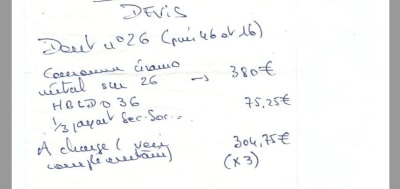 DEVIS
Dent n° 26 (puis 46 et 16)
Couronne céramo
métal sur 26 → 380€
HBLDO36 75,25€
1/3 payant Sec. Soc.
A charge (voir 304,75€
complémentaire) (x3)